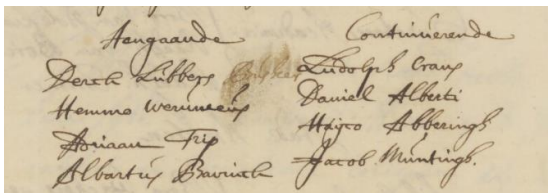 Aengaande
Derck Lübbers
Hemmo Wermeeus
Adriaan Trip
Albartus Bavinck
Continüerende
Lüdolph Crans
Daniel Alberti
Hajco Abberingh
Jacob Müntingh.